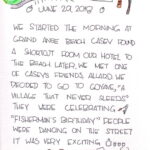 JUNE 29, 2018
WE STARTED THE MORNING AT
GRAND ANSE BEACH CASEY FOUND
A SHORTCUT FROM OUR HOTEL TO
THE BEACH LATER, WE MET ONE
OF CASEYS FRIENDS, ALLARD. WE
DECIDED TO GO TO GOYAVE, "A
VILLAGE THAT NEVER SLEEPS"
THEY WERE CELEBRATING
"FISHERMAN'S BIRTHDAY" PEOPLE
WERE DANCING ON THE STREET
IT WAS VERY EXCITING